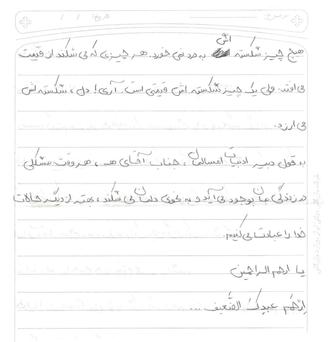 هیچ چیز شکسته اش به درد نمی خورد. هر چیزی که می شکند از قیمت
می افتد. ولی یک چیز شکسته اش قیمتی است. آری! دل، شکسته اش
می ارزد.
به قول دبیر ادبیات امسالمان، جناب آقای ...، هر وقت مشکلی
در زندگی مان بوجود می آید و به نحوی دلمان می شکند، بهتر از دیگر حالات
خدا را عبادت می کنیم.
یا ارحم الراحمین
اِرحَم عبدِکَ الضَّعیف ...